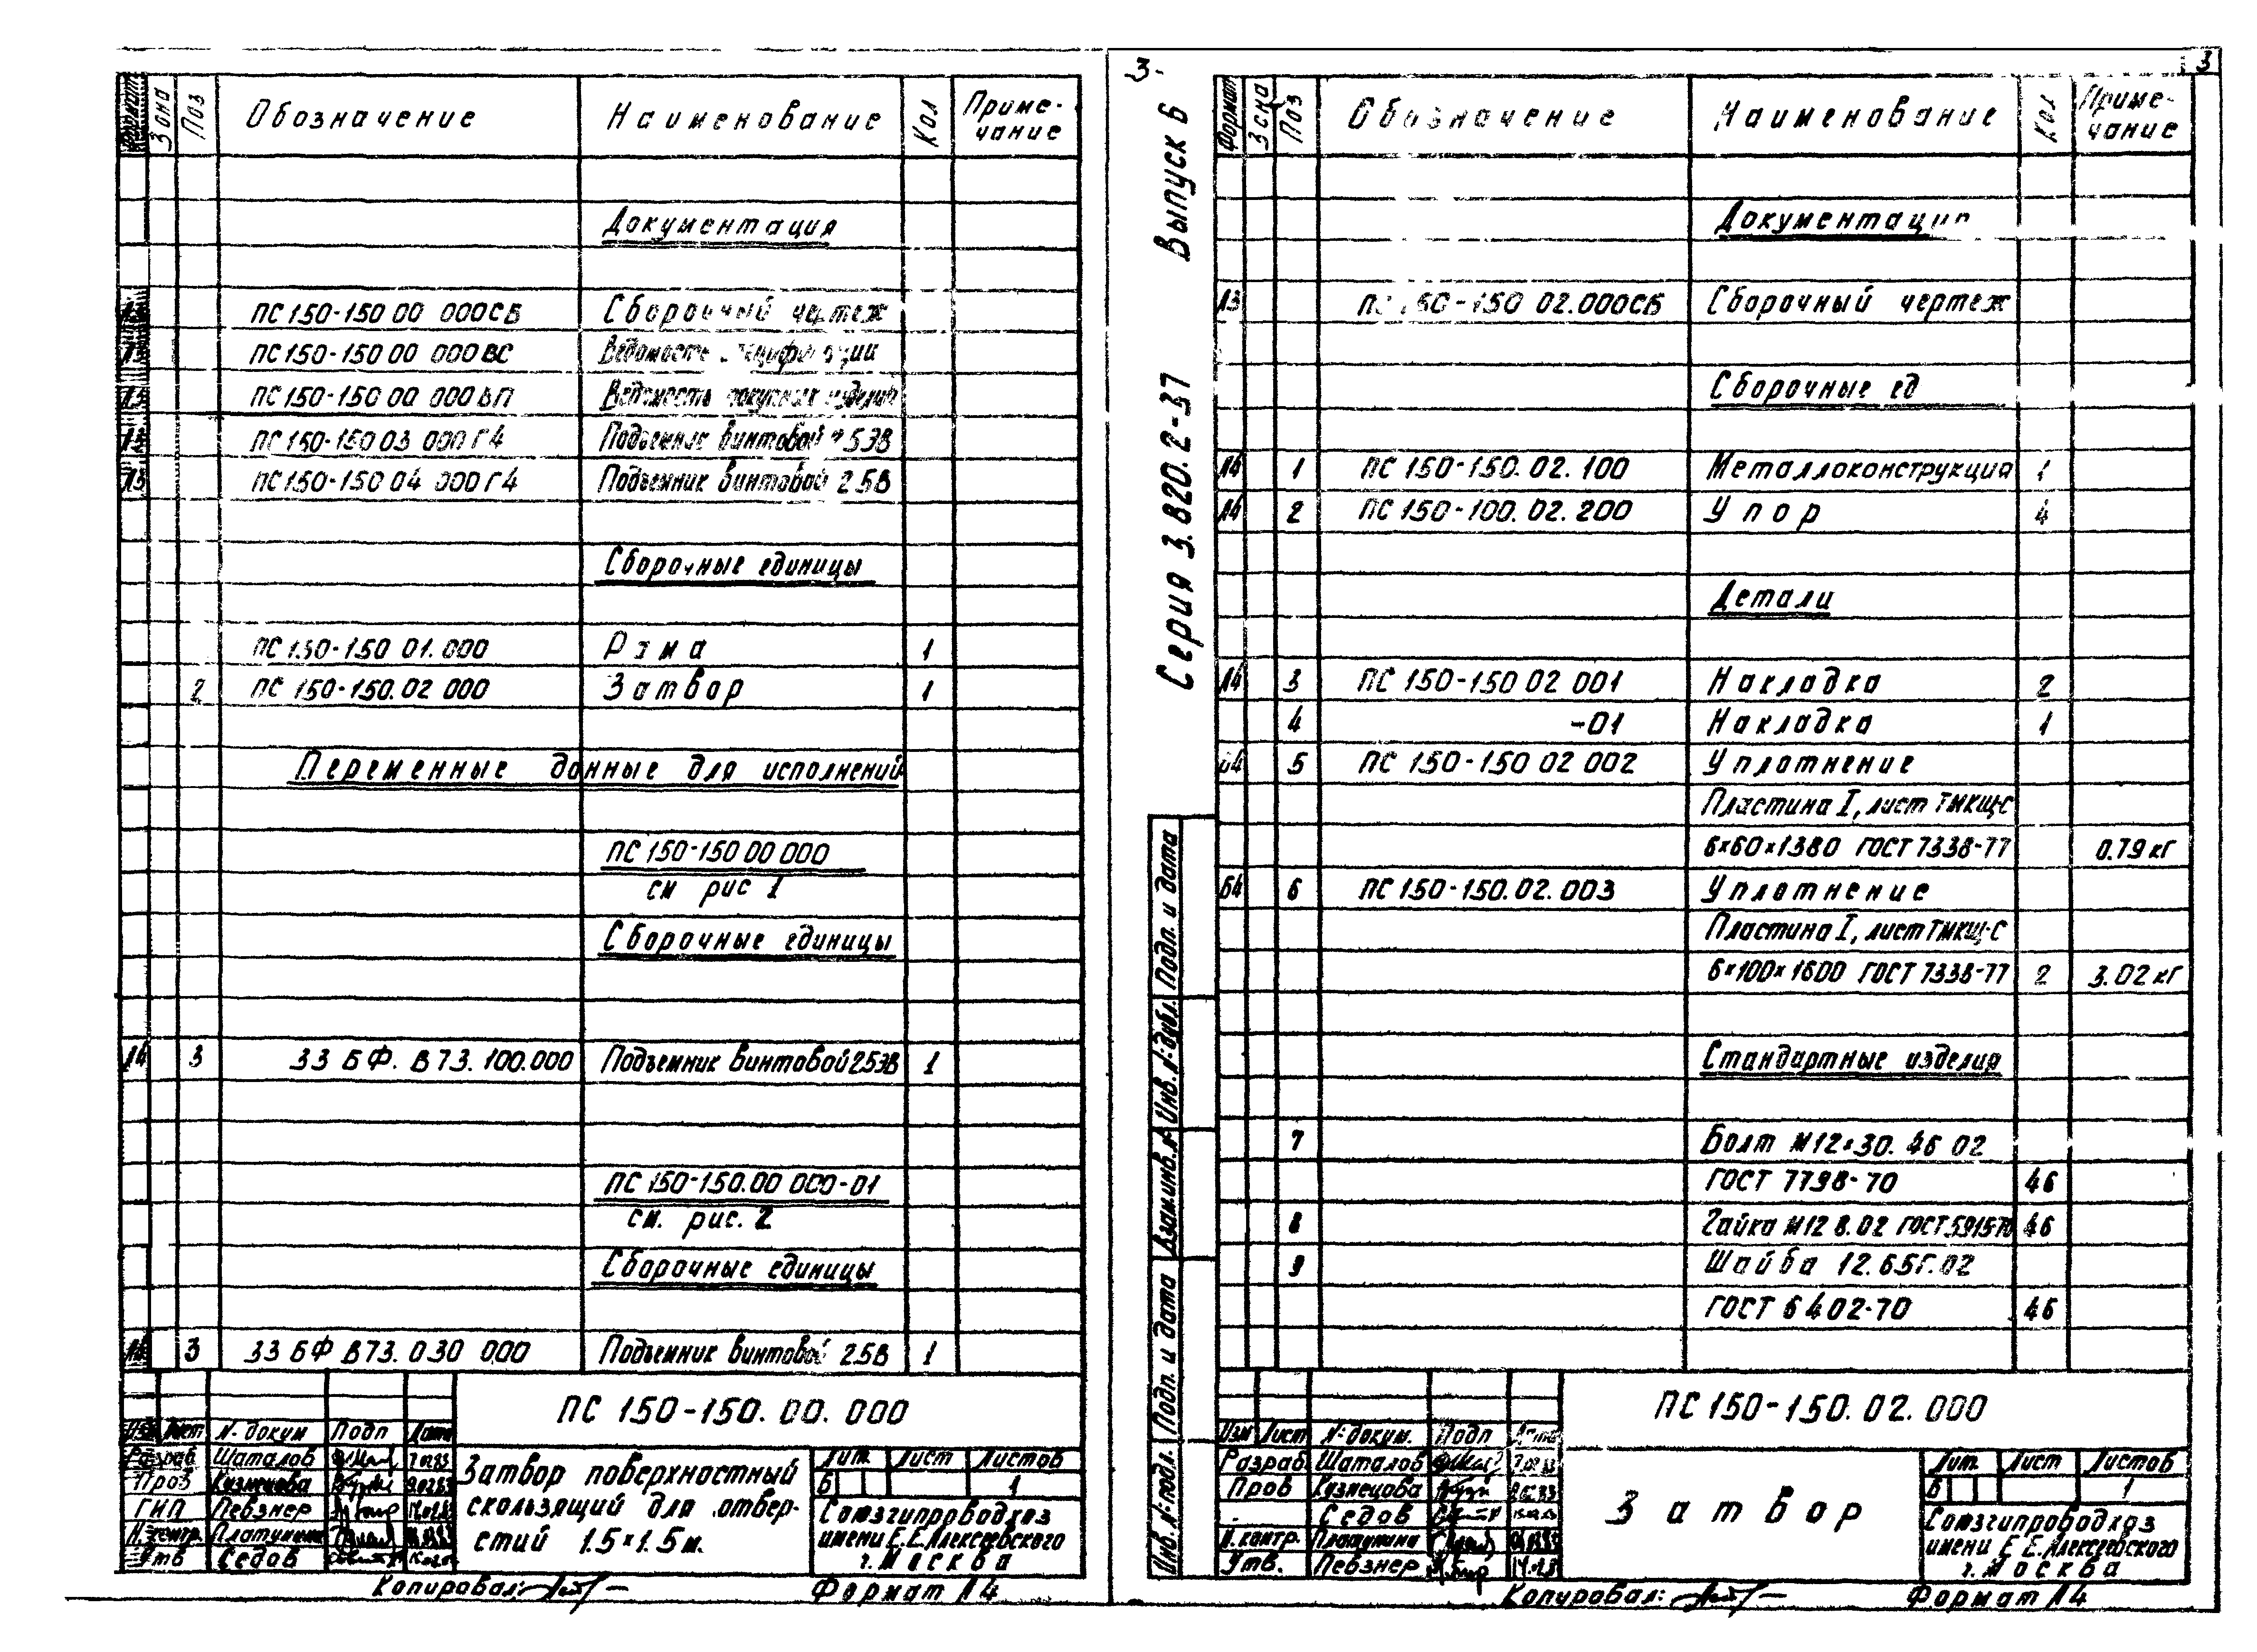 Формат Зона Поз Обозначение Наименование Кол Приме-
чание
Документация
А3 ПС 150-150 00 000СБ Сборочный чертеж
А3 ПС 150-150 00 000ВС Ведомость спецификации
А3 ПС 150-150 00 000ВП Ведомость покупных изделий
А3 ПС 150-150 03 000 Г4 Подъемник винтовой 2.5ЭВ
А3 ПС 150-150 04 000 Г4 Подъемник винтовой 2.5В
Сборочные единицы
ПС 150-150 01.000 Рама 1
2 ПС 150-150.02 000 Затвор 1
Переменные данные для исполнений
ПС 150-150 00 000
см рис 1
Сборочные единицы
А4 3 33 БФ. В73. 100.000 Подъемник винтовой 2.5ЭВ 1
ПС 150-150.00 000-01
см. рис. 2
Сборочные единицы
А4 3 33 БФ В73. 030 000 Подъемник винтовой 2.5В 1
ПС 150-150. 00. 000
Изм Лист № докум Подп Дата
Разраб Шаталов
Пров Кузнецова
ГИП Певзнер
Н. контр. Платунина
Утв Седов
Затвор поверхностный
скользящий для отвер-
стий 1.5×1.5 м.
Лит. Лист Листов
Б 1
Союзгипроводхоз
имени Е.Е.Алексеевского
г. Москва
Копировал:
Формат А4
-3-
3
Серия 3.820.2-37 Выпуск 6
Формат Зона Поз Обозначение Наименование Кол Приме-
чание
Документация
А3 ПС 150-150 02.000СБ Сборочный чертеж
Сборочные ед
А4 1 ПС 150-150.02.100 Металлоконструкция 1
А4 2 ПС 150-100.02.200 Упор 4
Детали
А4 3 ПС 150-150 02 001 Накладка 2
4 -01 Накладка 1
б4 5 ПС 150-150 02 002 Уплотнение
Пластина I, лист ТМКЩ-С
6×60×1380 ГОСТ 7338-77 0.79 кг
Б4 6 ПС 150-150.02.003 Уплотнение
Пластина I, лист ТМКЩ-С
6×100×1600 ГОСТ 7338-77 2 3.02 кг
Стандартные изделия
7 Болт М12×30. 46 02
ГОСТ 7798-70 46
8 Гайка М12 8.02 ГОСТ 5915-70 46
9 Шайба 12.65Г.02
ГОСТ 6402-70 46
Инв. № подл. Подп. и дата Взам.инв.№ Инв. № дубл. Подп. и дата
ПС 150-150. 02. 000
Изм Лист № докум. Подп Дата
Разраб. Шаталов
Пров Кузнецова
Седов
Н. контр. Платунина
Утв. Певзнер
Затвор
Лит. Лист Листов
Б 1
Союзгипроводхоз
имени Е.Е.Алексеевского
г. Москва
Копировал:
Формат А4